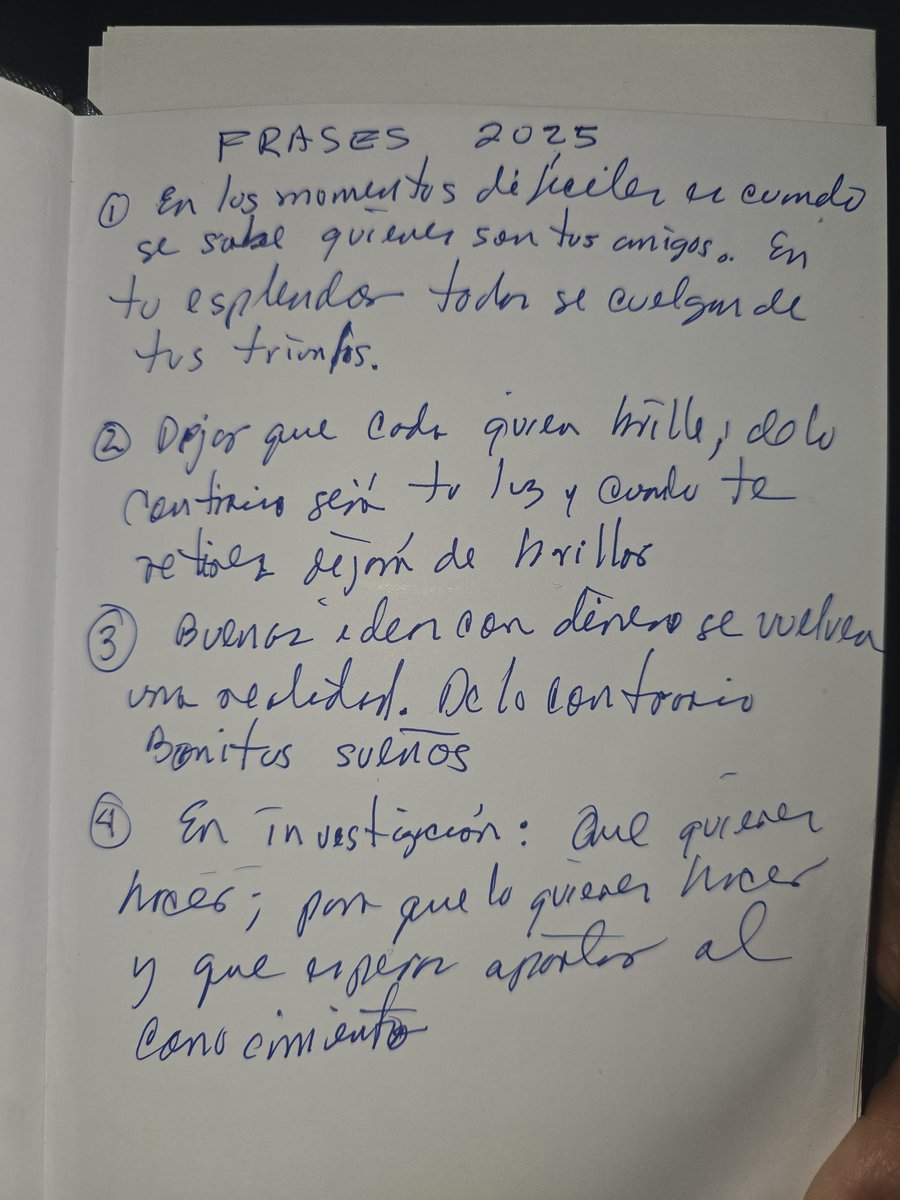 FRASES 2025
① En los momentos difíciles es cuando
se sabe quienes son tus amigos. En
tu esplendor todos se cuelgan de
tus triunfos.
② Dejar que cada quien brille, de lo
contrario será tu luz y cuando te
retires dejará de brillar
③ Buenas ideas con dinero se vuelven
una realidad. De lo contrario
Bonitos sueños
④ En investigación: Que quieres
hacer; para que lo quieres hacer
y que esperas aportar al
conocimiento